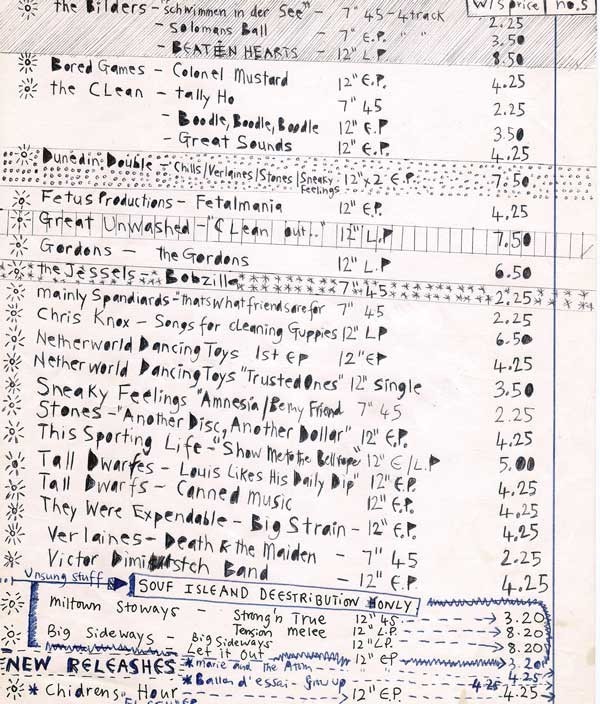 W/S price no.s
the Bilders - "schwimmen in der See" - 7" 45 - 4 track 2.25
- Solomans Ball - 7" E.P. " 3.50
- BEATEN HEARTS - 12" L.P 8.50
Bored Games - Colonel Mustard 12" E.P. 4.25
the CLean - tally Ho 7" 45 2.25
- Boodle, Boodle, Boodle 12" E.P 3.50
- Great Sounds 12" E.P. 4.25
Dunedin Double - Chills/Verlaines/Stones/Sneaky Feelings 12" x 2 E.P. 7.50
Fetus Productions - Fetalmania 12" E.P. 4.25
Great Unwashed - "CLean out.." 12" L.P 7.50
Gordons - the Gordons 12" L.P 6.50
the Jessels - Bobzilla 7" 45 2.25
mainly Spandiards - thats what friends are for 7" 45 2.25
Chris Knox - Songs for cLeaning Guppies 12" LP 6.50
Netherworld Dancing Toys 1st EP 12" EP 4.25
Netherworld Dancing Toys "Trusted Ones" 12" single 3.50
Sneaky Feelings "Amnesia/Be my Friend 7" 45 2.25
Stones - "Another Disc, Another Dollar" 12" E.P. 4.25
This Sporting Life - "Show Me to the Bellrope" 12" E/L.P 5.00
Tall Dwarfes - Louis Likes His Daily Dip" 12" E.P. 4.25
Tall Dwarfs - Canned Music 12" E.P. 4.25
They Were Expendable - Big Strain - 12" E.P. 4.25
Verlaines - Death & the Maiden - 7" 45 2.25
Victor Band - 12" E.P. 4.25
Unsung stuff SOUF ISLEAND DEESTRIBUTION ONLY
Miltown Stoways - Strong'n True 12" 45 3.20
Tension melee 12" L.P. 8.20
Big Sideways - Big Sideways 12" LP. 8.20
Let it Out 12" EP 3.20
NEW RELEASHES * marie and The Atom 4.25
* Ballon d'essai - Grow up 4.25
* Chidrens Hour 12" E.P. 4.25